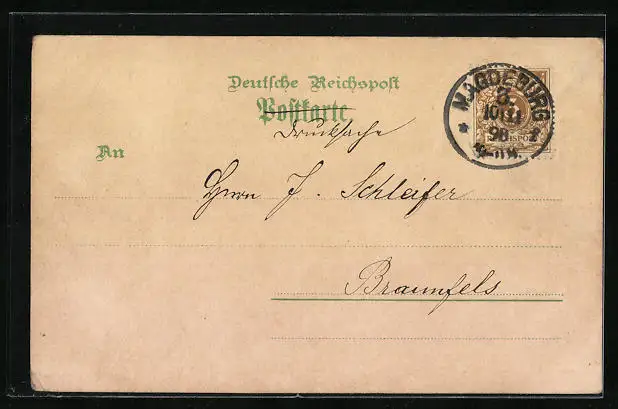 Deutsche Reichspost
Postkarte
Drucksache
An
Herrn J. Schleifer
Braunfels
MAGDEBURG
3.
98